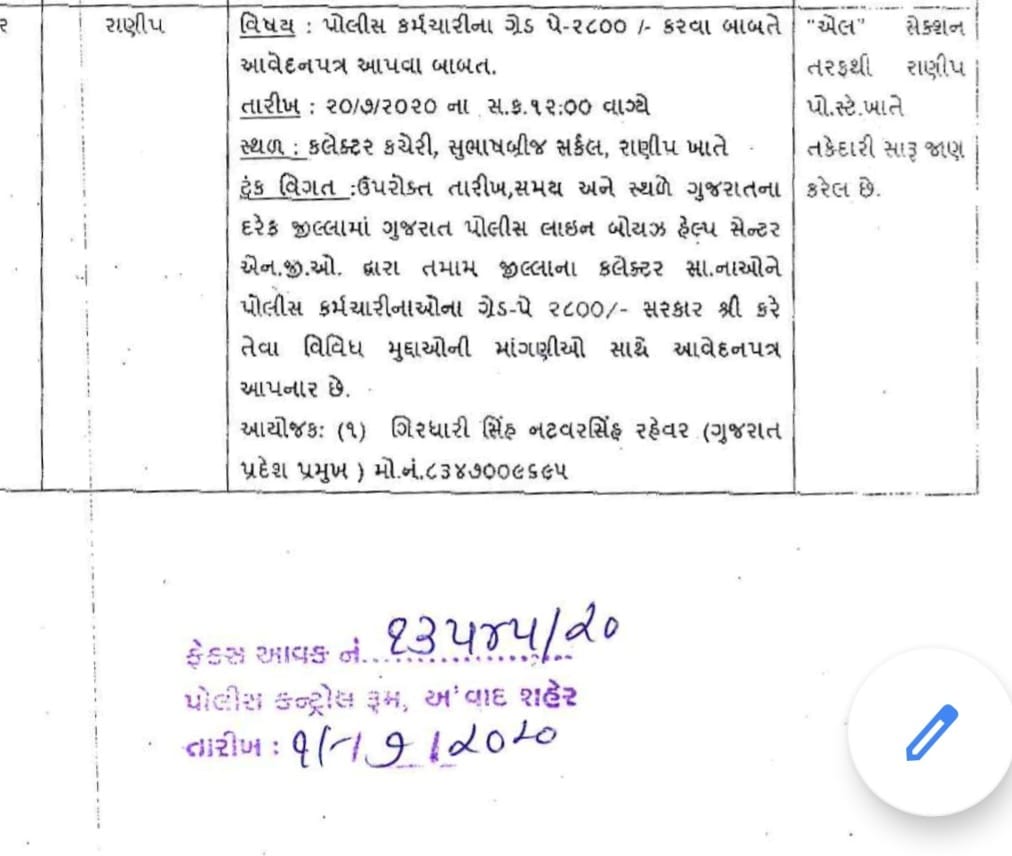 ર
રાણીપ
વિષય : પોલીસ કર્મચારીના ગ્રેડ પે-૨૮૦૦ /- કરવા બાબતે
આવેદનપત્ર આપવા બાબત.
તારીખ : ૨૦/૭/૨૦૨૦ ના સ.ક.૧૨:૦૦ વાગ્યે
સ્થળ : કલેક્ટર કચેરી, સુભાષબ્રીજ સર્કલ, રાણીપ ખાતે
ટુંક વિગત :ઉપરોક્ત તારીખ,સમય અને સ્થળે ગુજરાતના
દરેક જીલ્લામાં ગુજરાત પોલીસ લાઇન બોયઝ હેલ્પ સેન્ટર
એન.જી.ઓ. દ્વારા તમામ જીલ્લાના કલેક્ટર સા.નાઓને
પોલીસ કર્મચારીનાઓના ગ્રેડ-પે ૨૮૦૦/- સરકાર શ્રી કરે
તેવા વિવિધ મુદ્દાઓની માંગણીઓ સાથે આવેદનપત્ર
આપનાર છે.
આયોજક: (૧) ગિરધારી સિંહ નટવરસિંહ રહેવર (ગુજરાત
પ્રદેશ પ્રમુખ ) મો.નં.૮૩૪૭૦૦૯૬૯૫
"એલ" સેક્શન
તરફથી રાણીપ
પો.સ્ટે.ખાતે
તકેદારી સારૂ જાણ
કરેલ છે.
ફેકસ આવક નં. ૧૩૫૪૫/૨૦
પોલીસ કન્ટ્રોલ રૂમ, અ'વાદ શહેર
તારીખ : /૨૦૨૦